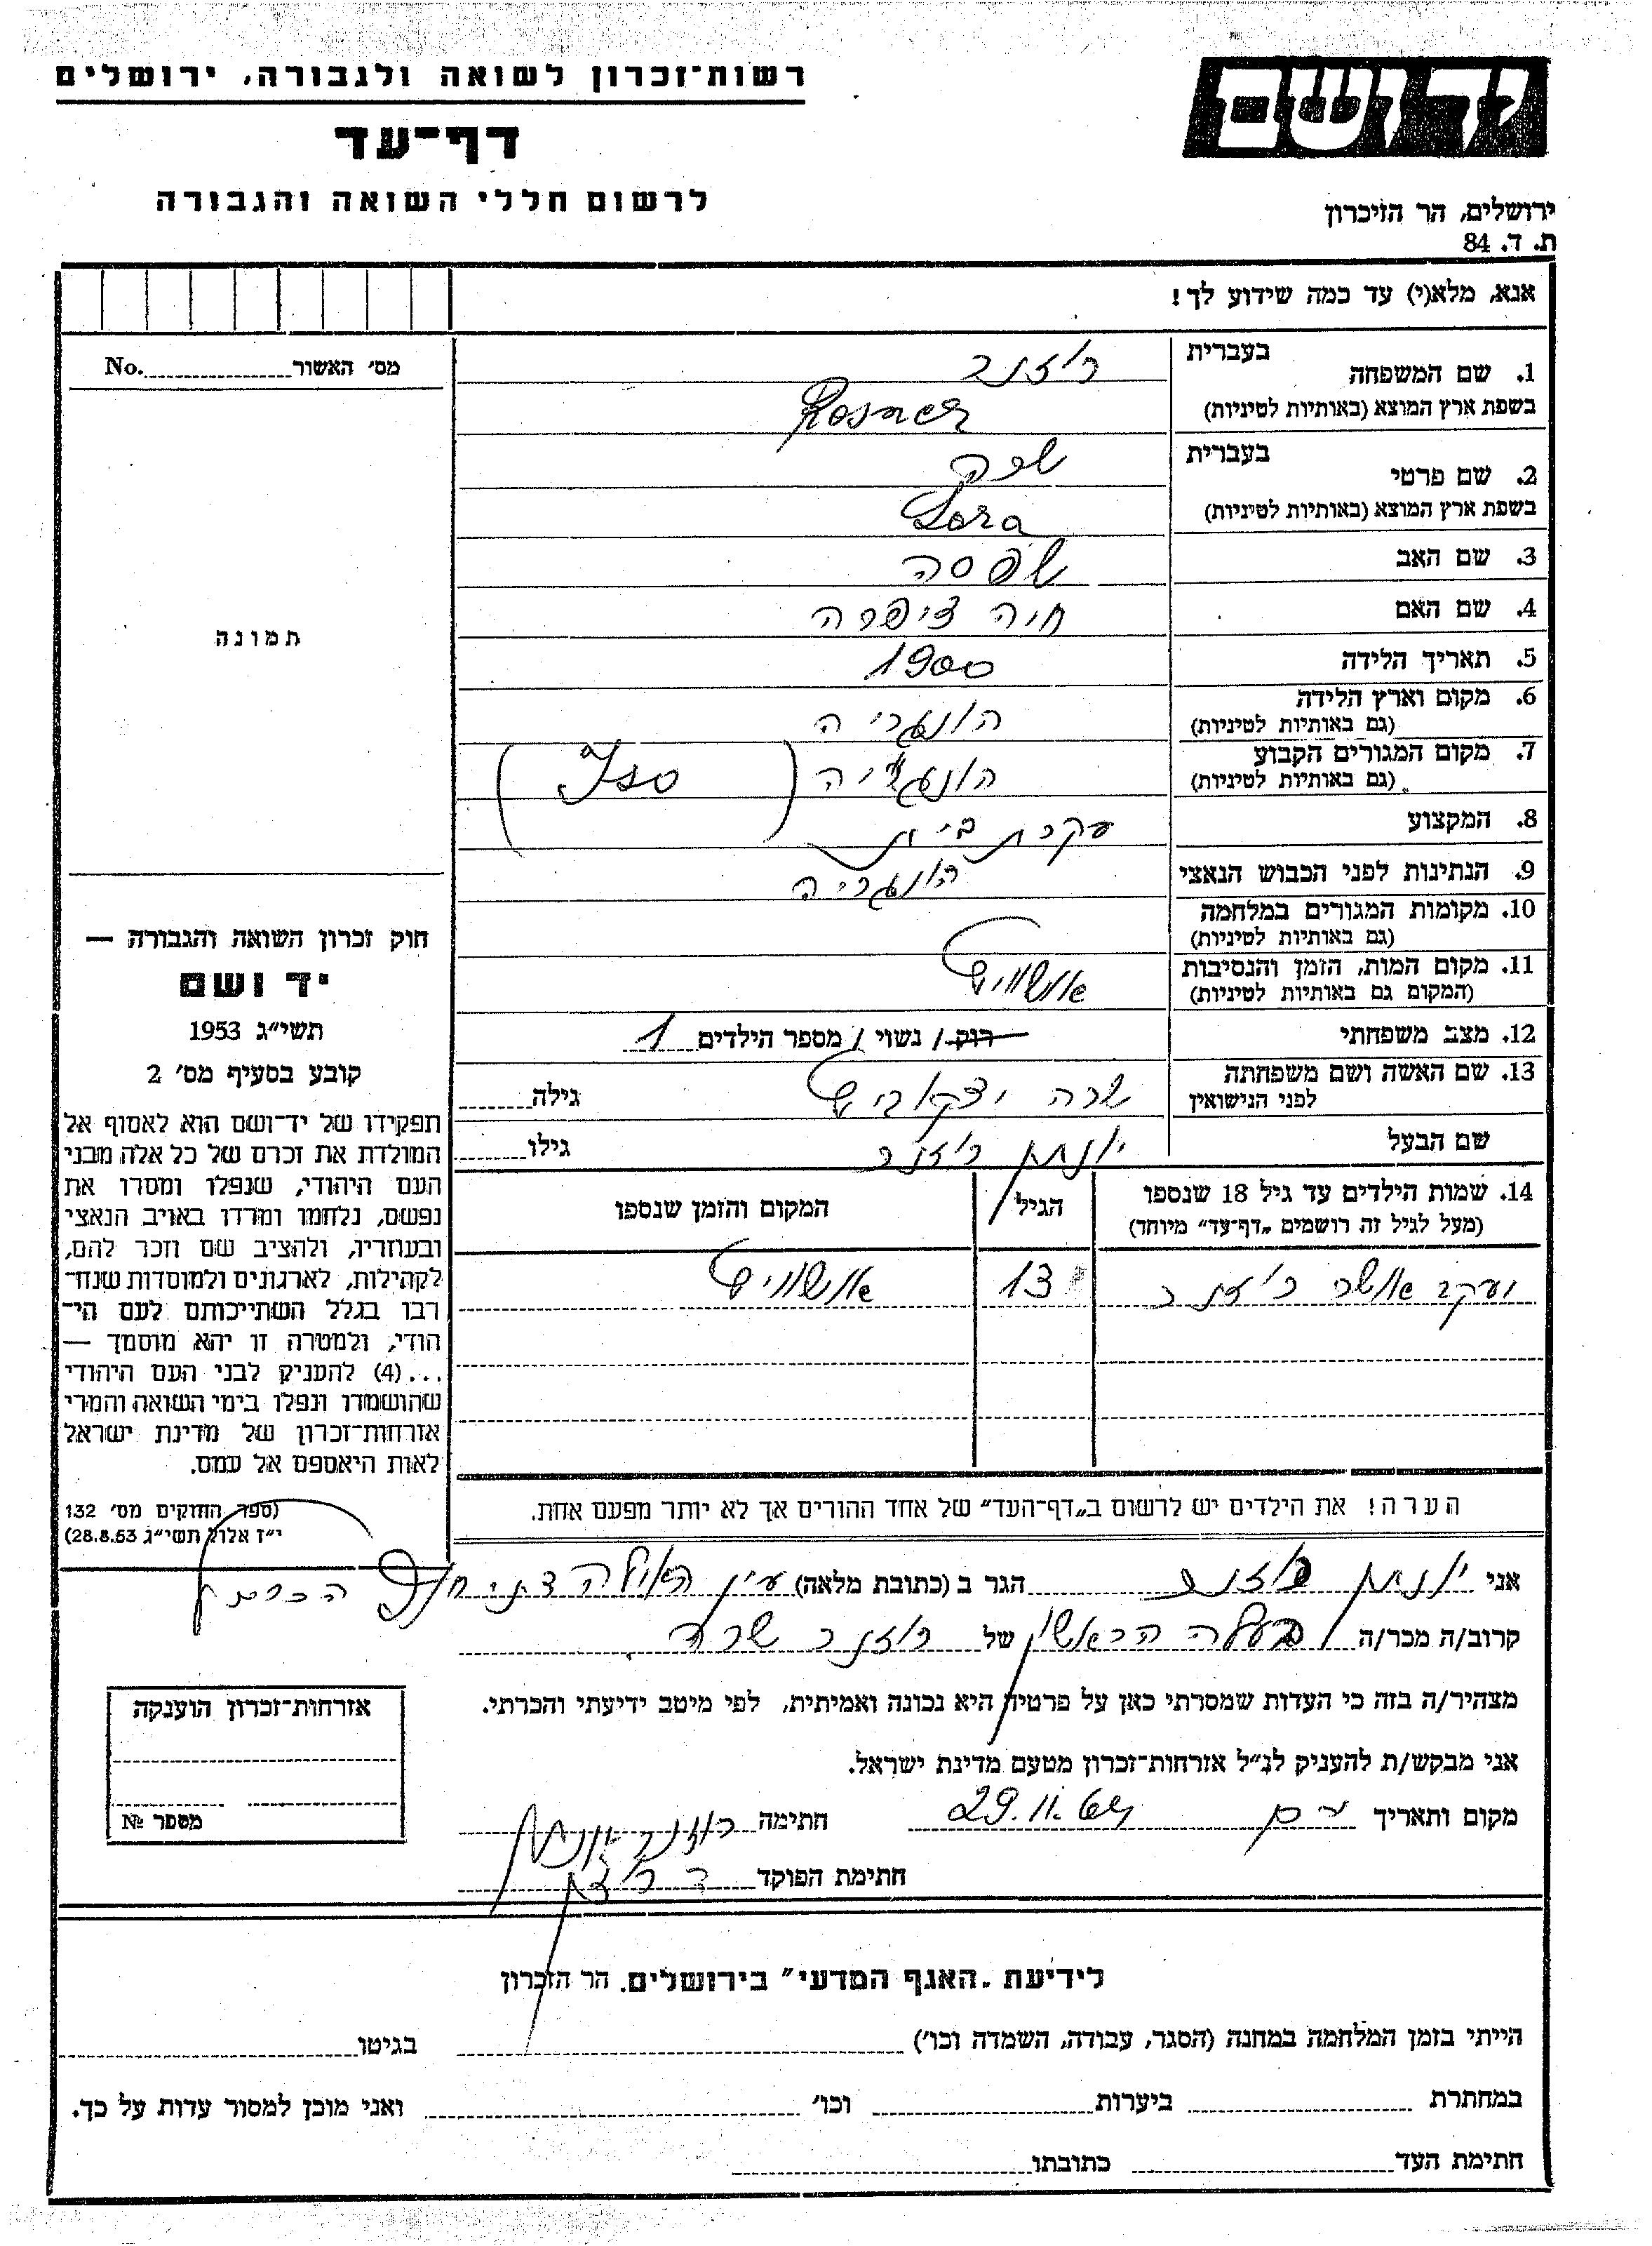 רשות־זכרון לשואה ולגבורה, ירושלים
דף־עד
לרשום חללי השואה והגבורה
יד ושם
ירושלים, הר הזיכרון
ת. ד. 84
אנא, מלא(י) עד כמה שידוע לך!
מס׳ האשור No.
תמונה
חוק זכרון השואה והגבורה —
יד ושם
תשי״ג 1953
קובע בסעיף מס׳ 2
תפקידו של יד־ושם הוא לאסוף אל
המולדת את זכרם של כל אלה מבני
העם היהודי, שנפלו ומסרו את
נפשם, נלחמו ומרדו באויב הנאצי
ובעוזריו, ולהציב שם וזכר להם,
לקהילות, לארגונים ולמוסדות שנח־
רבו בגלל השתייכותם לעם הי־
הודי, ולמטרה זו יהא מוסמך —
...(4) להעניק לבני העם היהודי
שהושמדו ונפלו בימי השואה והמרי
אזרחות־זכרון של מדינת ישראל
לאות היאספם אל עמם.
(ספר החוקים מס׳ 132
י״ז אלול תשי״ג 28.8.53)
1. שם המשפחה בעברית רוזנר
בשפת ארץ המוצא (באותיות לטיניות) Rosner
2. שם פרטי בעברית שרה
בשפת ארץ המוצא (באותיות לטיניות) Sara
3. שם האב שפסה
4. שם האם חיה ציפרה
5. תאריך הלידה 1900
6. מקום וארץ הלידה הונגריה
(גם באותיות לטיניות)
7. מקום המגורים הקבוע הונגריה
(גם באותיות לטיניות)
8. המקצוע עקרת בית
9. הנתינות לפני הכבוש הנאצי הונגריה
10. מקומות המגורים במלחמה
(גם באותיות לטיניות)
11. מקום המות, הזמן והנסיבות אושוויץ
(המקום גם באותיות לטיניות)
12. מצב משפחתי רווק / נשוי / מספר הילדים 1
13. שם האשה ושם משפחתה שרה יצקוביץ גילה
לפני הנישואין
שם הבעל יונתן רוזנר גילו
14. שמות הילדים עד גיל 18 שנספו הגיל המקום והזמן שנספו
(מעל לגיל זה רושמים „דף־עד״ מיוחד)
יעקב אשר רוזנר 13 אושוויץ
הערה! את הילדים יש לרשום ב„דף־העד״ של אחד ההורים אך לא יותר מפעם אחת.
אני יונתן רוזנר הגר ב (כתובת מלאה) עין האילה חוף הכרמל
קרוב/ה מכר/ה בעלה הראשון של רוזנר שרה
מצהיר/ה בזה כי העדות שמסרתי כאן על פרטיה היא נכונה ואמיתית, לפי מיטב ידיעתי והכרתי.
אני מבקש/ת להעניק לנ״ל אזרחות־זכרון מטעם מדינת ישראל.
מקום ותאריך 29.11 חתימה רוזנר יונתן
חתימת הפוקד
אזרחות־זכרון הוענקה
מספר №
לידיעת „האגף המדעי״ בירושלים, הר הזכרון
הייתי בזמן המלחמה במחנה (הסגר, עבודה, השמדה וכו׳) בגיטו
במחתרת ביערות וכו׳ ואני מוכן למסור עדות על כך.
חתימת העד כתובתו